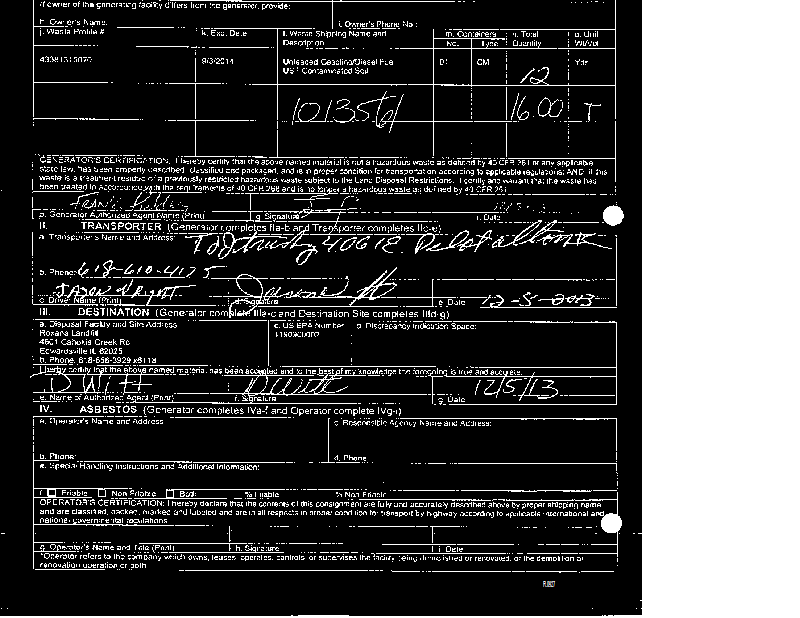 If owner of the generating facility differs from the generator, provide:
h. Owner's Name: i. Owner's Phone No.:
j. Waste Profile # k. Exp. Date l. Waste Shipping Name and Description m. Containers No. Type n. Total Quantity o. Unit Wt/Vol
9/3/2014 Unleaded Gasoline/Diesel Fuel CM 12 Yds
UST Contaminated Soil
16.00 T
GENERATOR'S CERTIFICATION: I hereby certify that the above named material is not a hazardous waste as defined by 40 CFR 261 or any applicable
state law, has been properly described, classified and packaged, and is in proper condition for transportation according to applicable regulations; AND, if this
waste is a treatment residue of a previously restricted hazardous waste subject to the Land Disposal Restrictions, I certify and warrant that the waste has
been treated in accordance with the requirements of 40 CFR 268 and is no longer a hazardous waste as defined by 40 CFR 261.
Frank
p. Generator Authorized Agent Name (Print) q. Signature r. Date
II. TRANSPORTER (Generator completes IIa-b and Transporter completes IIc-e)
a. Transporter's Name and Address:
b. Phone: 618-610-4175
Jason Wright 12-5-2013
c. Driver Name (Print) d. Signature e. Date
III. DESTINATION (Generator complete IIIa-c and Destination Site completes IIId-g)
a. Disposal Facility and Site Address c. US EPA Number d. Discrepancy Indication Space:
Roxana Landfill
4601 Cahokia Creek Rd
Edwardsville IL 62025
b. Phone: 618-656-3929 x6113
I hereby certify that the above named material has been accepted and to the best of my knowledge the foregoing is true and accurate.
D Witt D Witt 12/5/13
e. Name of Authorized Agent (Print) f. Signature g. Date
IV. ASBESTOS (Generator completes IVa-f and Operator complete IVg-i)
a. Operator's Name and Address: c. Responsible Agency Name and Address:
b. Phone: d. Phone:
e. Special Handling Instructions and Additional Information:
f. Friable Non Friable Both % Friable % Non Friable
OPERATOR'S CERTIFICATION: I hereby declare that the contents of this consignment are fully and accurately described above by proper shipping name
and are classified, packed, marked and labeled and are in all respects in proper condition for transport by highway according to applicable international and
national governmental regulations.
g. Operator's Name and Title (Print) h. Signature i. Date
*Operator refers to the company which owns, leases, operates, controls, or supervises the facility being demolished or renovated, or the demolition or
renovation operation or both